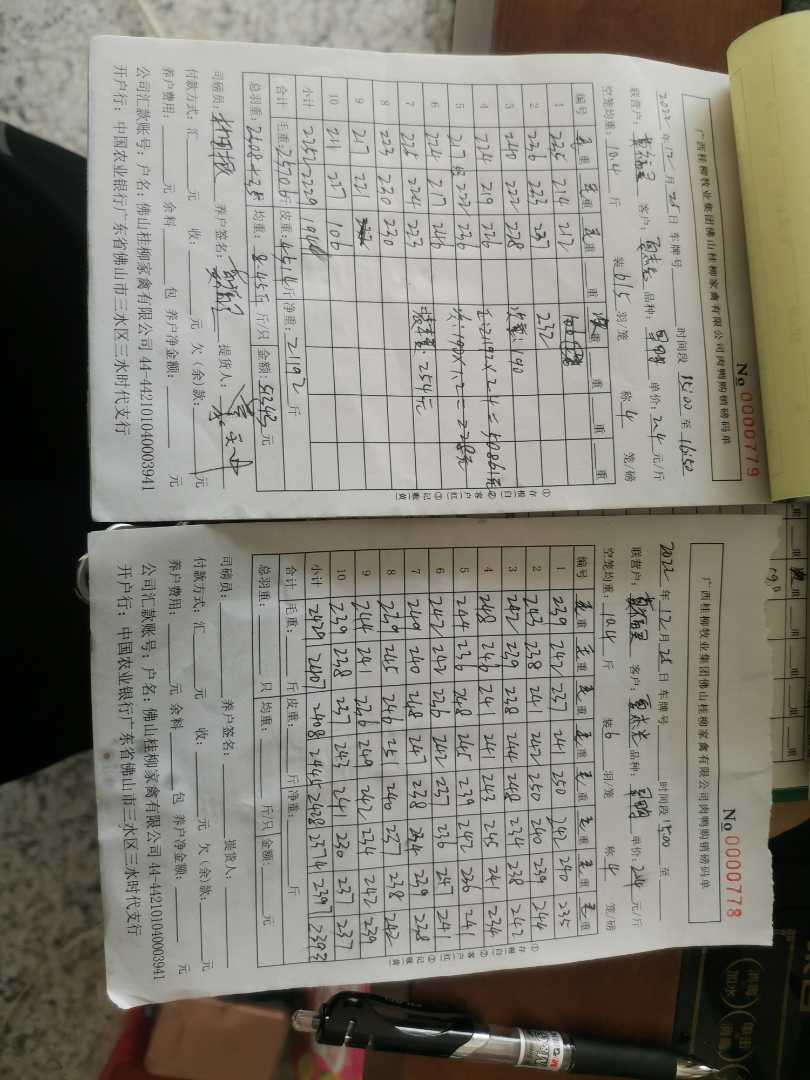 广西桂柳牧业集团佛山桂柳家禽有限公司肉鸭购销磅码单
No 0000779
时间段 15:00 至 16:50
2022年12月25日 车牌号
联营户: 客户: 品种: 单价: 2.4 元/斤
空笼均重: 10.4 斤 装 6/5 羽/笼 称 4 笼/磅
编号 毛重 毛重 毛重 重 次重 重 重 重
1 225 214 217
2 226 223 237 232
3 240 222 228 次重: 190
4 224 219 226 正: 21192×2.4=50861元
5 217 222 236 次: 190×1.2=228元
6 224 217 246
7 225 224 223 254元
8 223 230 230
9 217 221
10 211 227 106
小计 2252 2229
合计 毛重: 25706 斤 皮重: 4514 斤 净重: 21192 斤
总羽重: 2508 均重: 8.45斤 斤/只 金额: 51343 元
司磅员: 养户签名: 提货人:
付款方式: 汇 元 收: 元 欠(余)款: 元
养户费用: 元 余料 包 养户净金额: 元
公司汇款账号: 户名: 佛山桂柳家禽有限公司 44-442101040003941
开户行: 中国农业银行广东省佛山市三水区三水时代支行
①存根(白) ②客户(红) ③记账(黄)
广西桂柳牧业集团佛山桂柳家禽有限公司肉鸭购销磅码单
No 0000778
2022年12月25日 车牌号 时间段 15:00 至
联营户: 客户: 品种: 单价: 2.4 元/斤
空笼均重: 10.4 斤 装 6 羽/笼 称 4 笼/磅
编号 毛重 毛重 毛重 毛重 毛重 毛重 毛重 毛重
1 239 242 237 241 250 242 240 235
2 243 238 241 242 250 240 239 244
3 242 239 238 244 248 234 238 242
4 248 246 241 241 243 245 241 234
5 244 236 248 245 239 242 236 241
6 242 242 236 242 237 236 247 241
7 249 240 248 247 238 244 239 238
8 239 245 246 251 240 237 238 242
9 244 241 246 249 242 234 242 239
10 239 238 237 243 241 230 237 237
小计 2429 2407 2408 2445 2428 2374 2397 2393
合计 毛重: 斤 皮重: 斤 净重: 斤
总羽重: 只 均重: 斤/只 金额: 元
司磅员: 养户签名: 提货人:
付款方式: 汇 元 收: 元 欠(余)款: 元
养户费用: 元 余料 包 养户净金额: 元
公司汇款账号: 户名: 佛山桂柳家禽有限公司 44-442101040003941
开户行: 中国农业银行广东省佛山市三水区三水时代支行
①存根(白) ②客户(红) ③记账(黄)